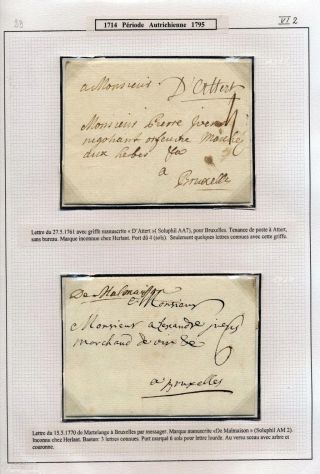 1714 Période Autrichienne 1795
VI 2
a Monsieur D'Attert
Monsieur Pierre
negotiant
aux herbes
a
Bruxelle
Lettre du 27.5.1761 avec griffe manuscrite « D'Attert »( Soluphil AA7), pour Bruxelles. Tenance de poste à Attert,
sans bureau. Marque inconnue chez Herlant. Port dû 4 (sols). Seulement quelques lettres connues avec cette griffe.
De Malmaison
Monsieur
Monsieur alexandre
marchand de
a Bruxelles
6
Lettre du 15.5.1770 de Martelange à Bruxelles par messager. Marque manuscrite «De Malmaison » (Soluphil AM 2).
Inconnu chez Herlant. Bastan: 3 lettres connues. Port marqué 6 sols pour lettre lourde. Au verso sceau avec arbre et
couronne.